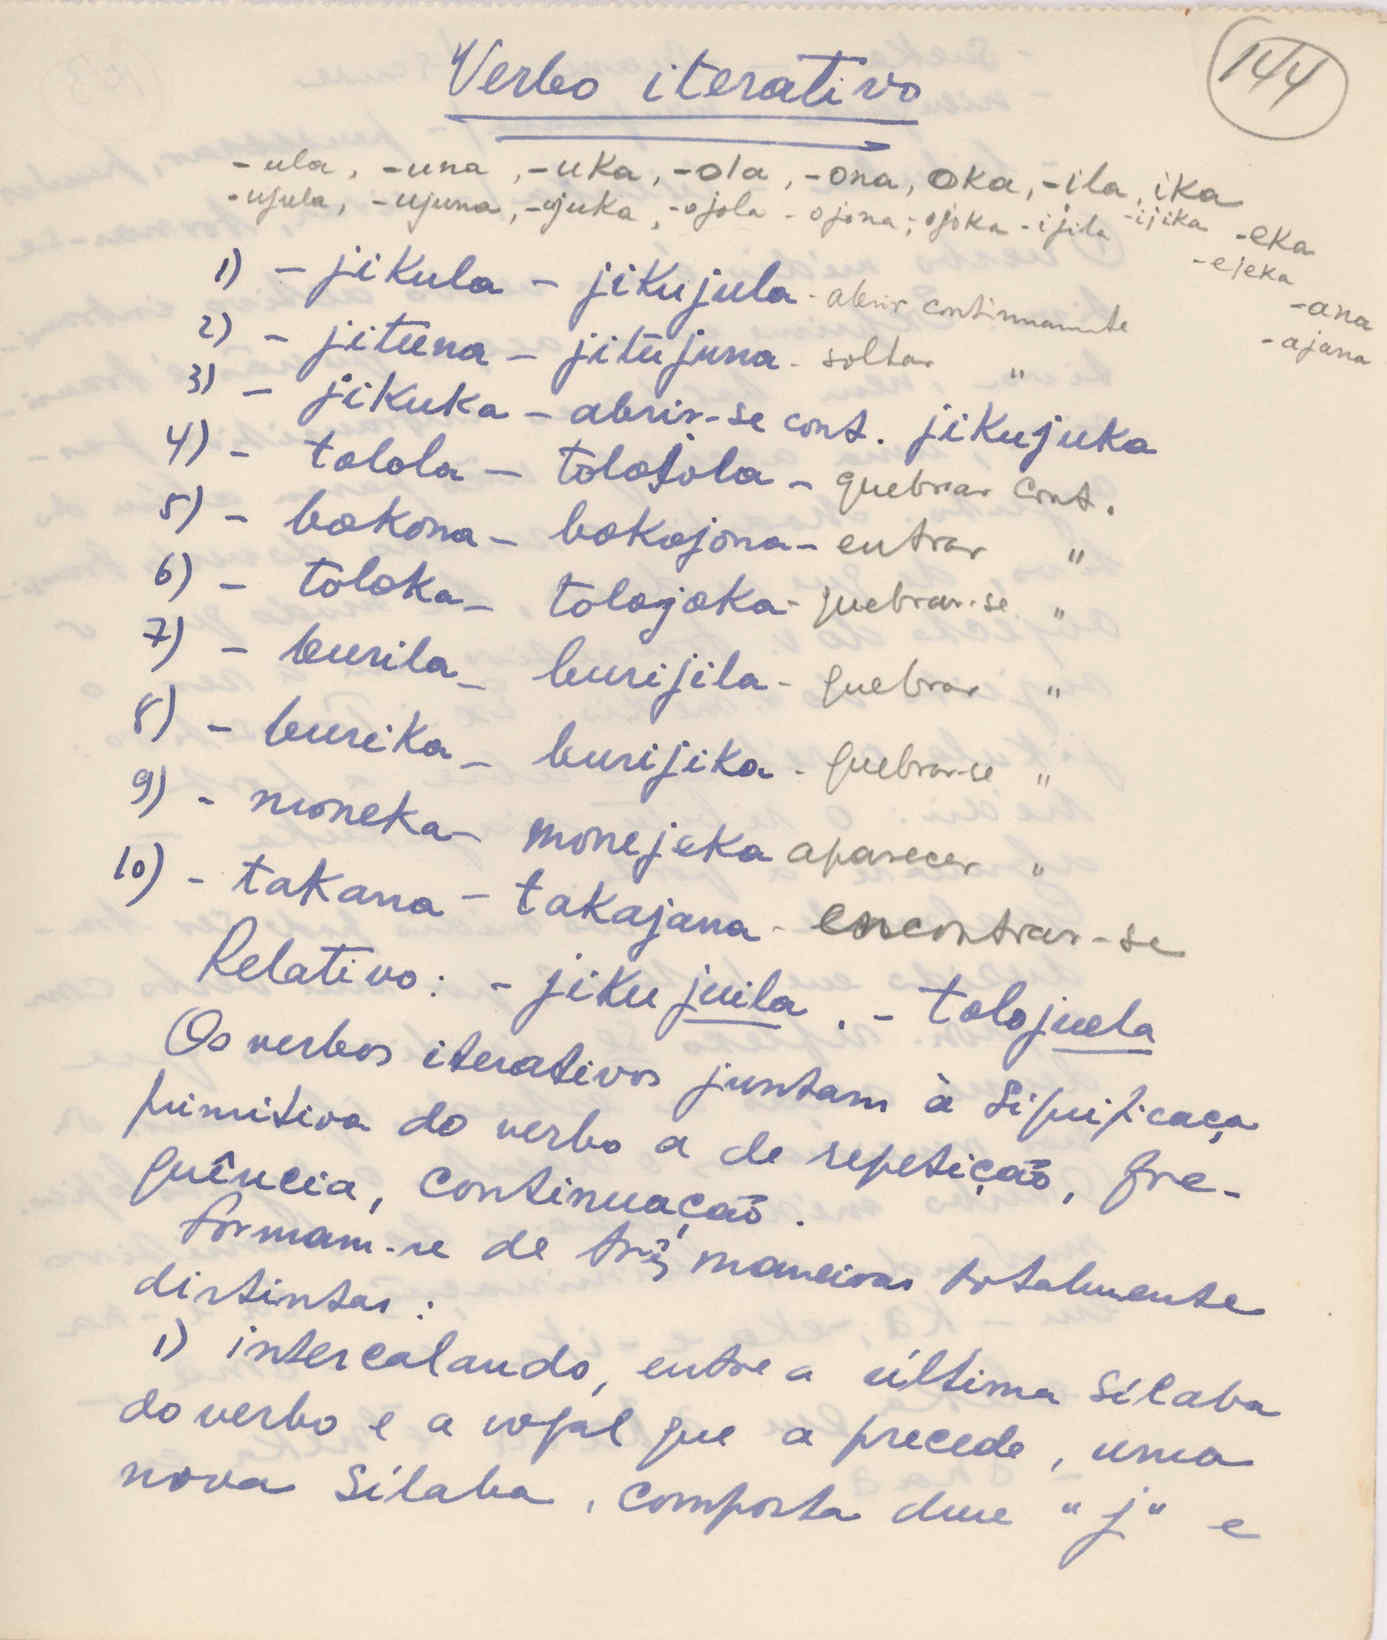 144
Verbo iterativo
-ula, -una, -uka, -ola, -ona, oka, -ila, ika -eka -ana
-ujula, -ujuna, -ujuka, -ojola - ojona; ojoka - ijila -ijika -ejeka -ajana
1) - jikula - jikujula - abrir continuamente
2) - jituna - jitujuna - soltar "
3) - jikuka - abrir-se cont. jikujuka
4) - tolola - tolojola - quebrar cont.
5) - bokona - bokojona - entrar "
6) - toloka - tolojoka - quebrar-se "
7) - burila - burijila - quebrar "
8) - burika - burijika - quebrar-se "
9) - moneka - monejeka aparecer "
10) - takana - takajana - encontrar-se
Relativo: - jikujuila . - tolojuela
Os verbos iterativos juntam à significaçã
primitiva do verbo a de repetição, fre-
quência, continuação.
Formam-se de três maneiras totalmente
distintas:
1) intercalando, entre a última sílaba
do verbo e a vogal que a precede, uma
nova sílaba, composta dum "j" e